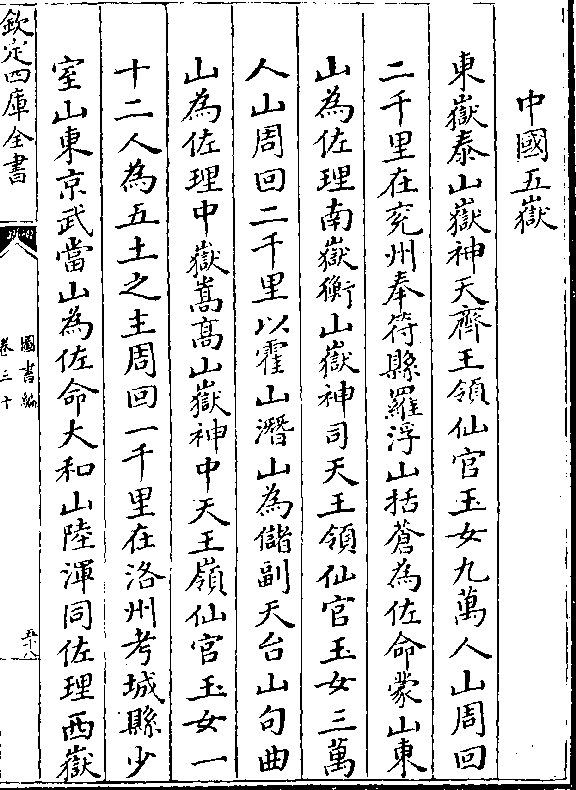 中國五嶽
東嶽泰山嶽神天齊王領仙官玉女九萬人山周回
二千里在兗州奉符縣羅浮山括蒼為佐命蒙山東
山為佐理南嶽衡山嶽神司天王領仙官玉女三萬
人山周回二千里以霍山潛山為儲副天台山句曲
山為佐理中嶽嵩高山嶽神中天王嶺仙官玉女一
十二人為五土之主周回一千里在洛州考城縣少
室山東京武當山為佐命大和山陸渾同佐理西嶽
欽定四庫全書
圖書編
卷三十
五十八